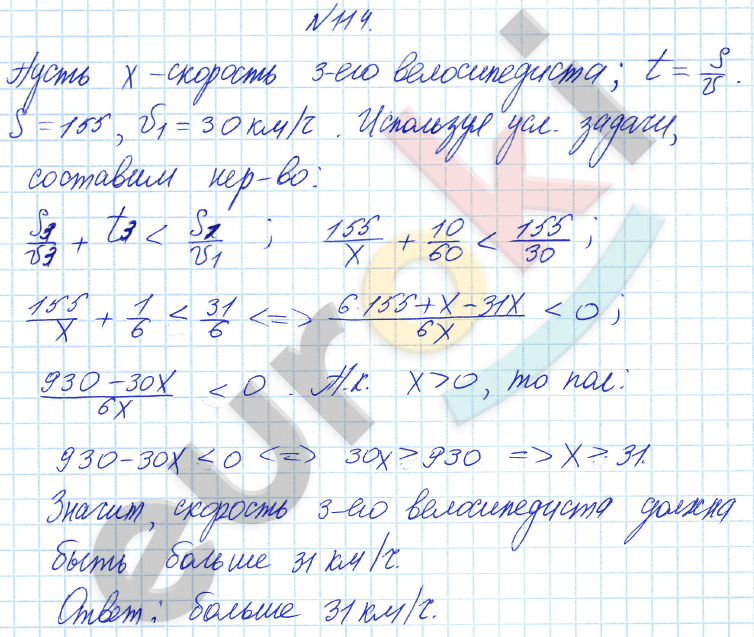 №114.
Пусть x – скорость 3-его велосипедиста; t = S/v.
S = 155, v₁ = 30 км/ч. Используя усл. задачи,
составим нер-во:
S₃/v₃ + t₃ < S₁/v₁ ; 155/x + 10/60 < 155/30 ;
155/x + 1/6 < 31/6 <=> (6·155 + x – 31x)/6x < 0 ;
(930 – 30x)/6x < 0. Т.к. x > 0, то пол:
930 – 30x < 0 <=> 30x > 930 => x > 31.
Значит, скорость 3-его велосипедиста должна
быть больше 31 км/ч.
Ответ: больше 31 км/ч.
euroki